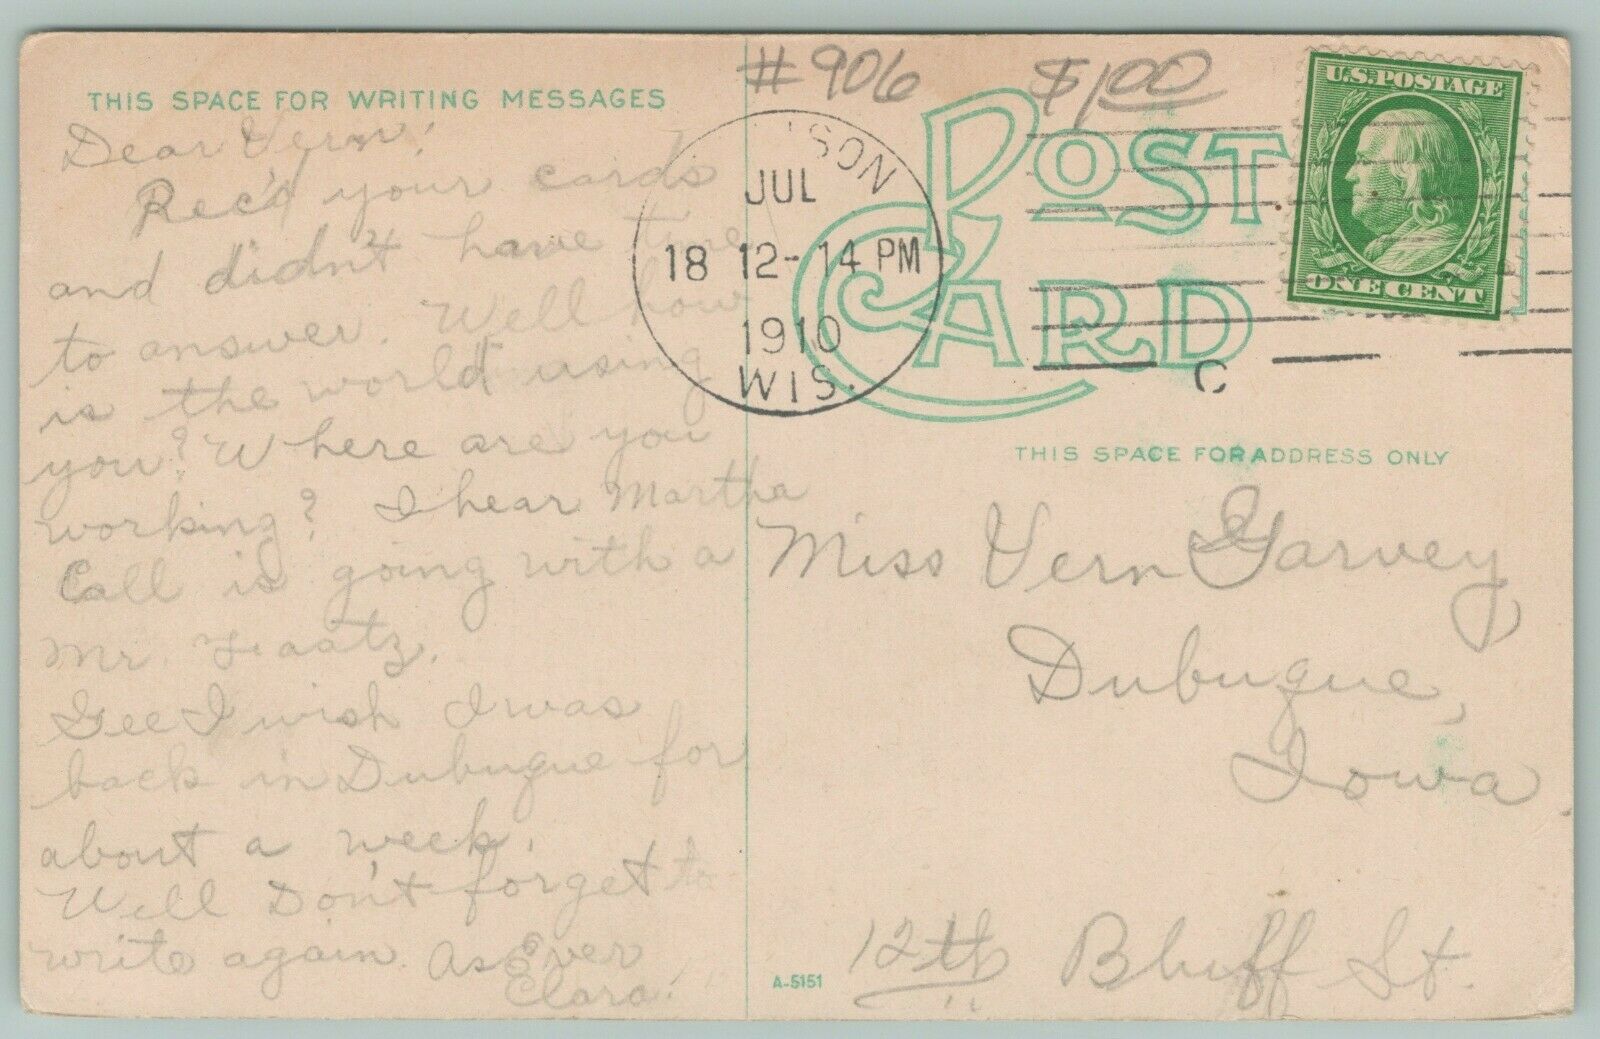 #906 $1.00
THIS SPACE FOR WRITING MESSAGES
Dear Vern,
Rec'd your cards
and didn't have time
to answer. Well how
is the world using
you? Where are you
working? I hear Martha
Call is going with a
Mr.
Gee I wish I was
back in Dubuque for
about a week.
Well Don't forget to
write again. As Ever
Clara.
SON
JUL
18 12-14 PM
1910
WIS.
POST
CARD
C
U.S. POSTAGE
ONE CENT
THIS SPACE FOR ADDRESS ONLY
Miss Vern Garvey
Dubuque,
Iowa.
12th Bluff St.
A-5151